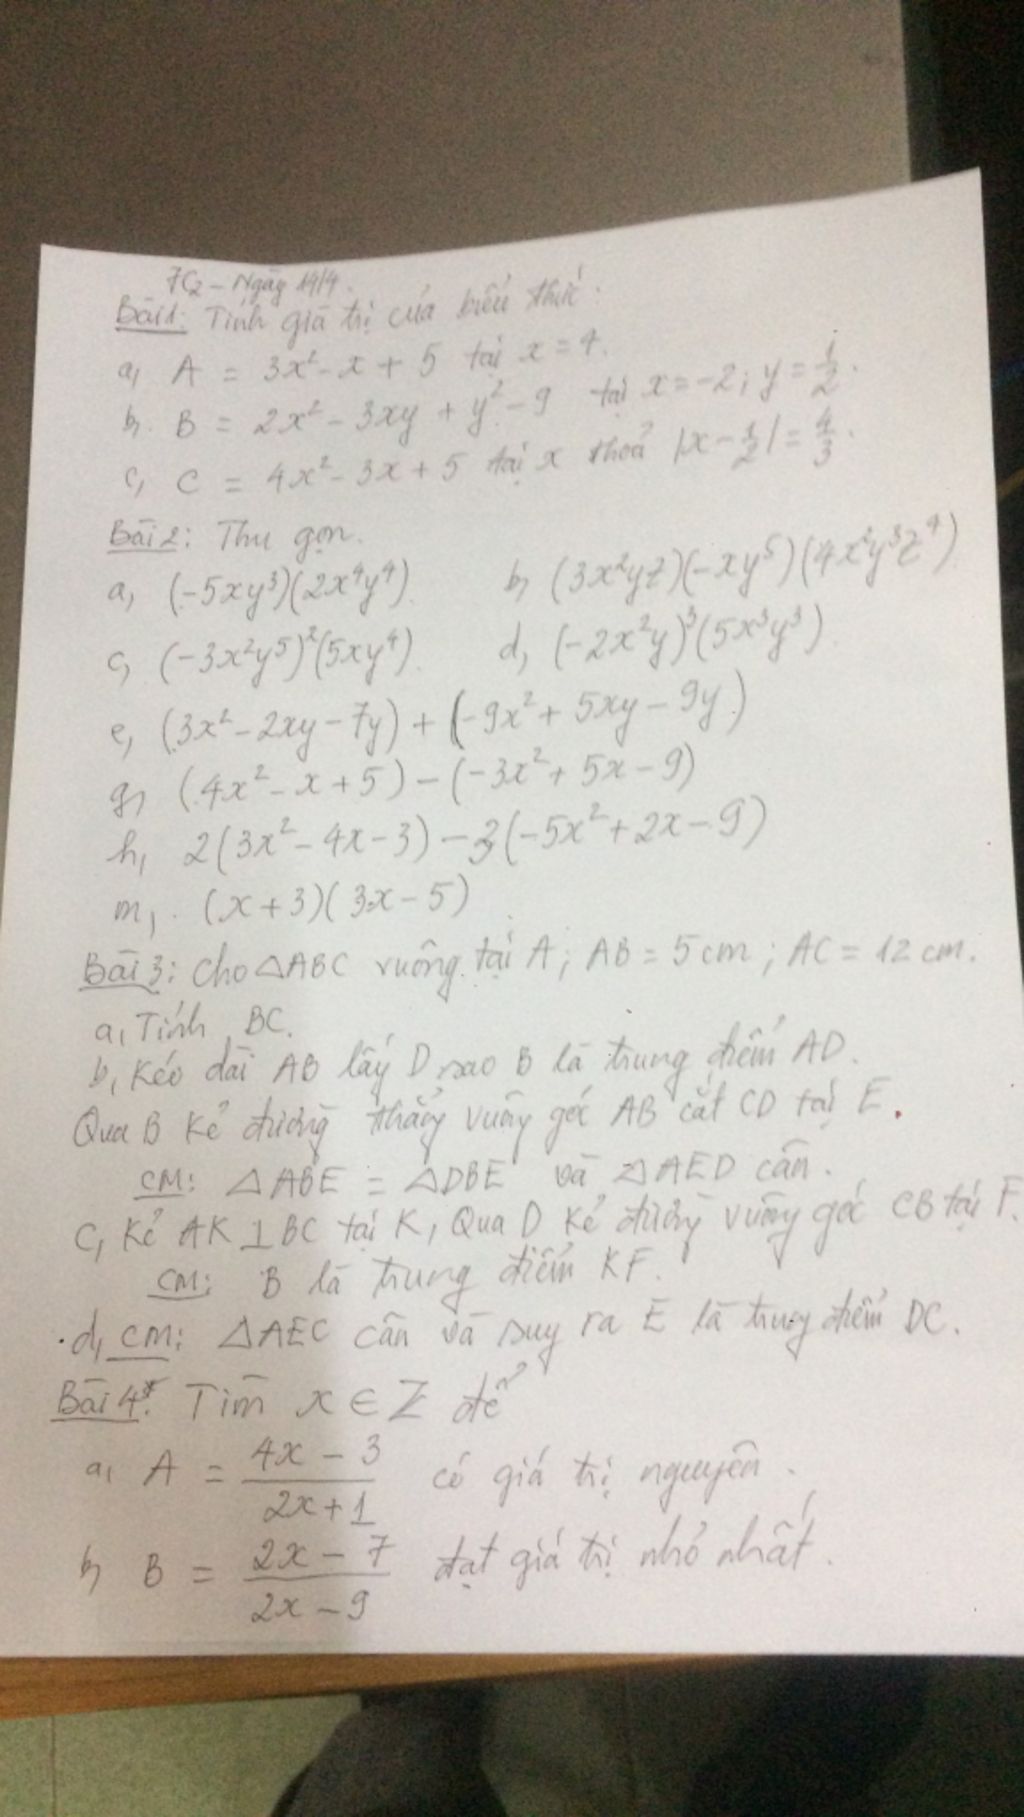 7C2 - Ngày 14/4.
Bài 1: Tính giá trị của biểu thức:
a, A = 3x² - x + 5 tại x = 4.
b, B = 2x² - 3xy + y² - 9 tại x = -2; y = 1/2.
c, C = 4x² - 3x + 5 tại x thoả |x - 1/2| = 4/3.
Bài 2: Thu gọn.
a, (-5xy³)(2x⁴y⁴) b, (3x²yz)(-xy⁵)(4x²y³z⁴)
c, (-3x²y⁵)²(5xy⁴). d, (-2x²y)³(5x³y³).
e, (3x² - 2xy - 7y) + (-9x² + 5xy - 9y)
g, (4x² - x + 5) - (-3x² + 5x - 9)
h, 2(3x² - 4x - 3) - 3(-5x² + 2x - 9)
m, (x + 3)(3x - 5)
Bài 3: Cho △ABC vuông tại A; AB = 5 cm; AC = 12 cm.
a, Tính BC.
b, Kéo dài AB lấy D sao B là trung điểm AD.
Qua B kẻ đường thẳng vuông góc AB cắt CD tại E.
CM: △ABE = △DBE và △AED cân.
c, Kẻ AK ⊥ BC tại K, Qua D kẻ đường vuông góc CB tại F.
CM: B là trung điểm KF.
d, CM: △AEC cân và suy ra E là trung điểm DC.
Bài 4*: Tìm x ∈ Z để
a, A = (4x - 3)/(2x + 1) có giá trị nguyên.
b, B = (2x - 7)/(2x - 9) đạt giá trị nhỏ nhất.